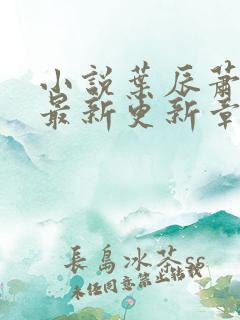 小說葉辰蕭
最新更新章
長島冰茶ss
未經同意禁止轉載